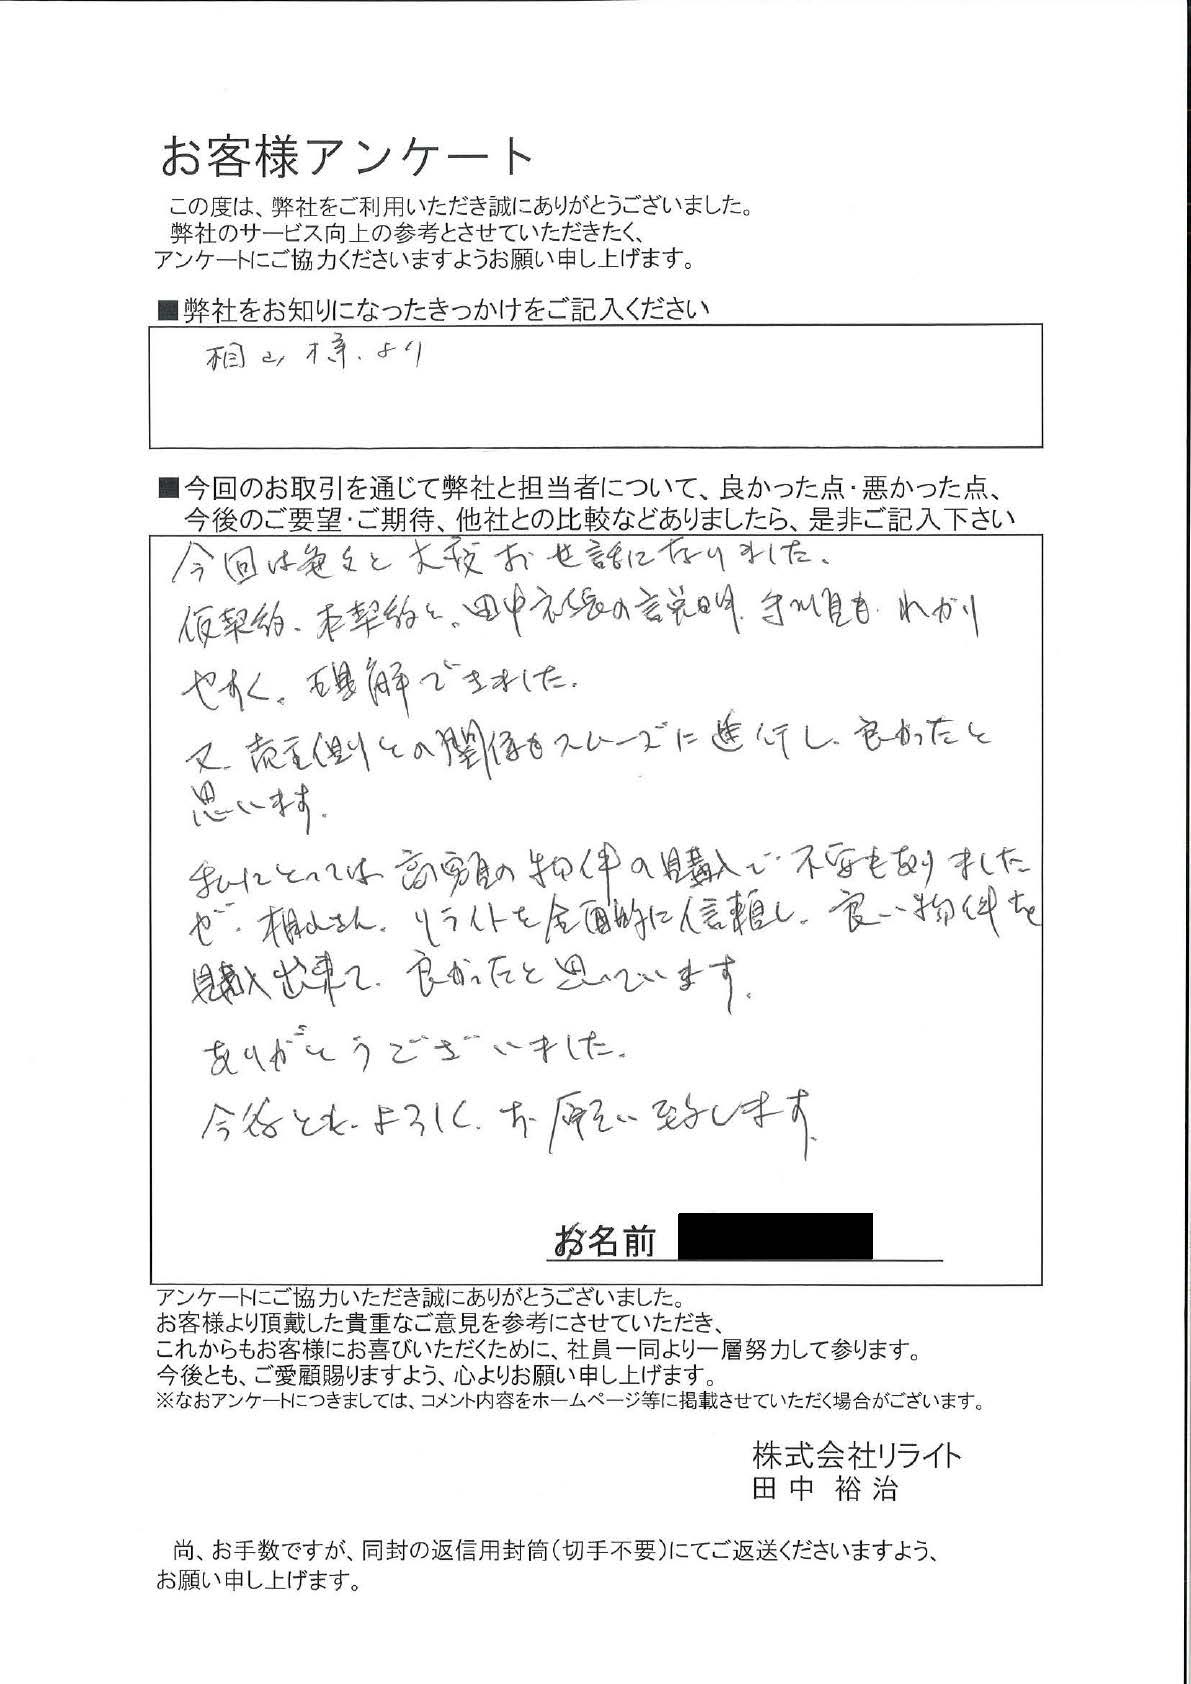 お客様アンケート
この度は、弊社をご利用いただき誠にありがとうございました。
弊社のサービス向上の参考とさせていただきたく、
アンケートにご協力くださいますようお願い申し上げます。
■弊社をお知りになったきっかけをご記入ください
相山様より
■今回のお取引を通じて弊社と担当者について、良かった点・悪かった点、
今後のご要望・ご期待、他社との比較などありましたら、是非ご記入下さい
今回は色々と大変お世話になりました。
仮契約、本契約と、田中社長の説明、手順も、わかり
やすく、理解できました。
又、売主側との関係もスムーズに進行し、良かったと
思います。
私にとっては高額の物件の購入で、不安もありました
が、相山さん、リライトを全面的に信頼し、良い物件を
購入出来て、良かったと思っています。
ありがとうございました。
今後とも、よろしく、お願い致します。
お名前
アンケートにご協力いただき誠にありがとうございました。
お客様より頂戴した貴重なご意見を参考にさせていただき、
これからもお客様にお喜びいただくために、社員一同より一層努力して参ります。
今後とも、ご愛顧賜りますよう、心よりお願い申し上げます。
※なおアンケートにつきましては、コメント内容をホームページ等に掲載させていただく場合がございます。
株式会社リライト
田中 裕治
尚、お手数ですが、同封の返信用封筒(切手不要)にてご返送くださいますよう、
お願い申し上げます。